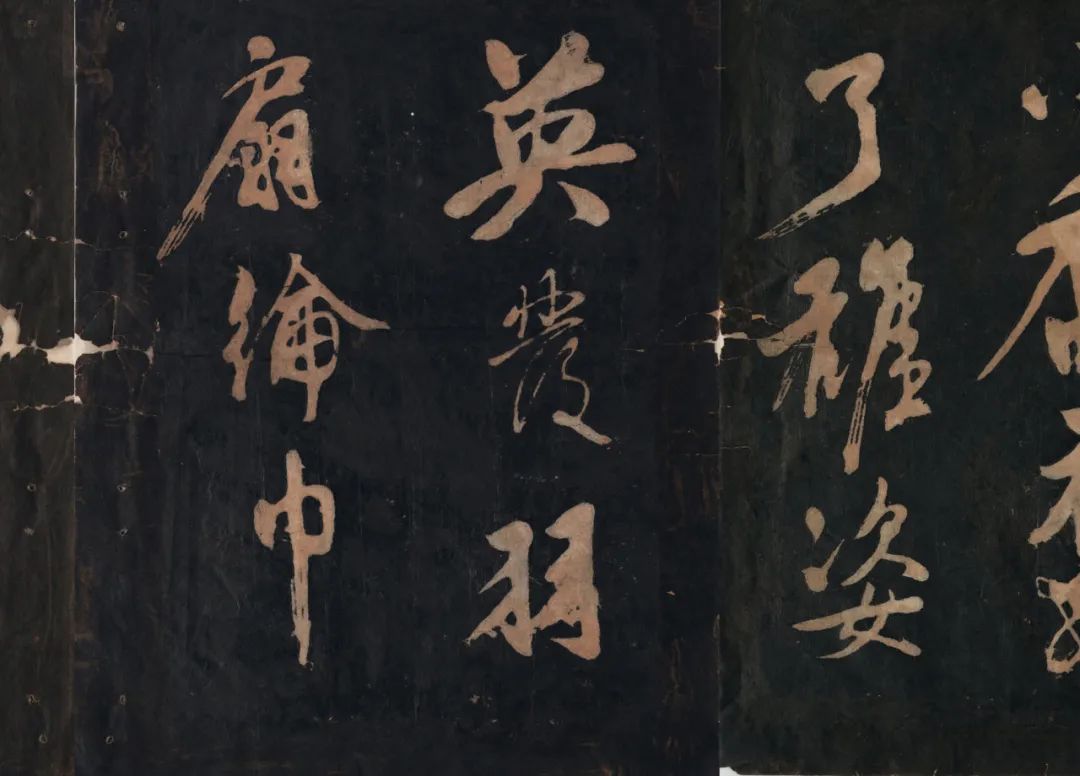 了雄姿
英發羽
扇綸巾